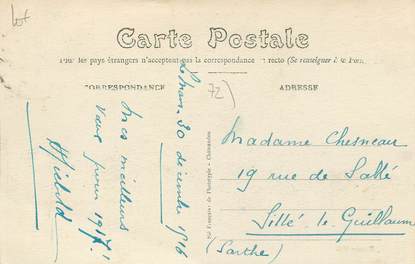 Carte Postale
les pays étrangers n'acceptent pas la correspondance recto (Se renseigner à la
CORRESPONDANCE
ADRESSE
72)
Le Mans, 30 décembre 1916
Mes meilleurs
vœux pour 1917!
Madame Chesneau
19 rue de Sablé
Sillé-le-Guillaume
(Sarthe)